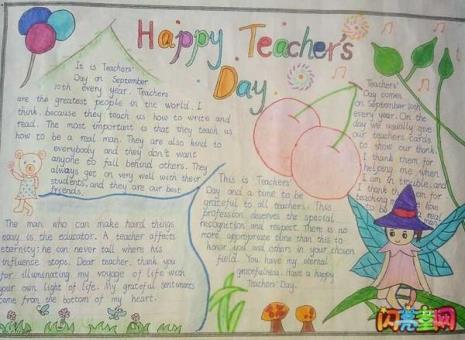 Happy Teacher's
Day
It is Teachers'
Day on September
10th every year. Teachers
are the greatest people in the world. I
think, because they teach us how to write and
read. The most important is that they teach us
how to be a real man. They are also kind to
everybody and they don't want
anyone to fall behind others. They
always get on very well with their
students, and they are our best
friends.
The man who can make hard things
easy is the educator. A teacher affects
eternity; he can never tell where his
influence stops. Dear teacher, thank you
for illuminating my voyage of life with
your own light of life. My grateful sentiments
come from the bottom of my heart.
This is Teachers'
Day and a time to be
grateful to all teachers. This
profession deserves the special
recognition and respect. There is no
more appropriate time than this to
honor and others in your chosen
field. You have my eternal
gratefulness. Have a happy
Teachers' Day.
Teachers'
Day comes
on September 10th
every year. On the
day we usually give
our teachers cards
to show our thanks
I thank them for
helping me when
I am in trouble, and
I thank them for
teaching me
love
real
man
闪亮童网